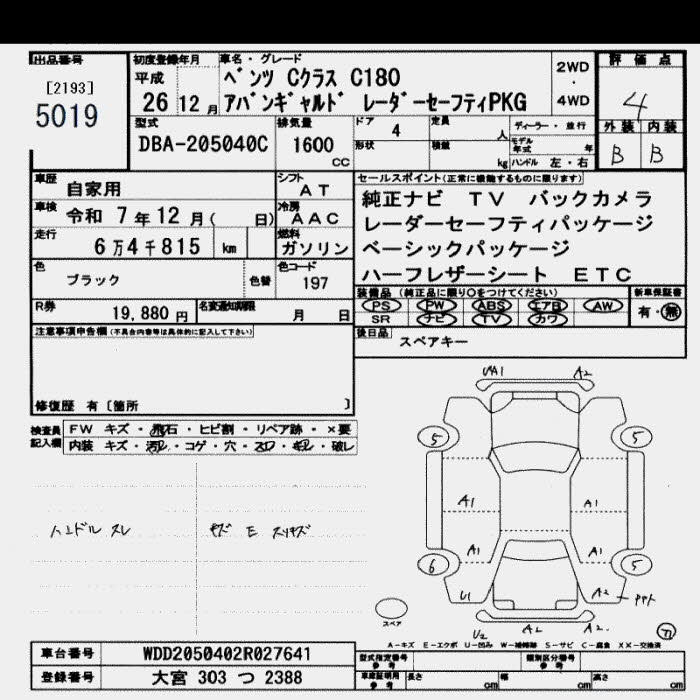 出品番号
[2193]
5019
初度登録年月
平成
26 12 月
車名・グレード
ベンツ Cクラス C180
アバンギャルド レーダーセーフティPKG
2WD
・
4WD
評価点
4
外装 内装
B B
型式
DBA-205040C
排気量
1600
CC
ドア
4
形状
定員
人
積載
kg
ディーラー・並行
モデル年式
年
ハンドル 左・右
車歴
自家用
シフト
AT
車検
令和 7年12月( 日)
冷房
AAC
走行
6万4千815 km
燃料
ガソリン
色
ブラック
色替
色コード
197
R券
19,880 円
名変通知期限
月 日
セールスポイント(正常に機能するものに限ります)
純正ナビ TV バックカメラ
レーダーセーフティパッケージ
ベーシックパッケージ
ハーフレザーシート ETC
装備品 (純正品に限り○をつけてください)
PS PW ABS エアB AW
SR ナビ TV カワ
新車保証書
有・無
後日品
スペアキー
注意事項申告欄(不具合内容等は具体的に記入して下さい)
修復歴 有〔箇所 〕
検査員
記入欄
FW キズ・飛石・ヒビ割・リペア跡・×要
内装 キズ・汚レ・コゲ・穴・スレ・キレ・破レ
ハンドル スレ
キズ E スリキズ
A2
5
5
A1
A1
A1
A1
6
5
U1
A2
スペア
U2
A2
A2
A-キズ E-エクボ U-凹み W-補修跡 S-サビ C-腐食 XX-交換済
車台番号
WDD2050402R027641
登録番号
大宮 303 つ 2388
型式指定番号
参考
類別区分番号
参考
車庫証明用
参考
長さ
cm
幅
cm
高さ
cm